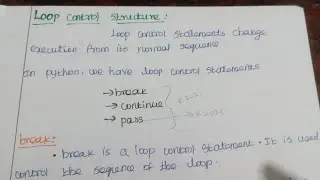 Loop Control Structure:
Loop control statements change
execution from its normal sequence.
In python, we have loop control statements
→break
→continue
→pass
break:
• break is a loop control statement. It is used
control the sequence of the loop.